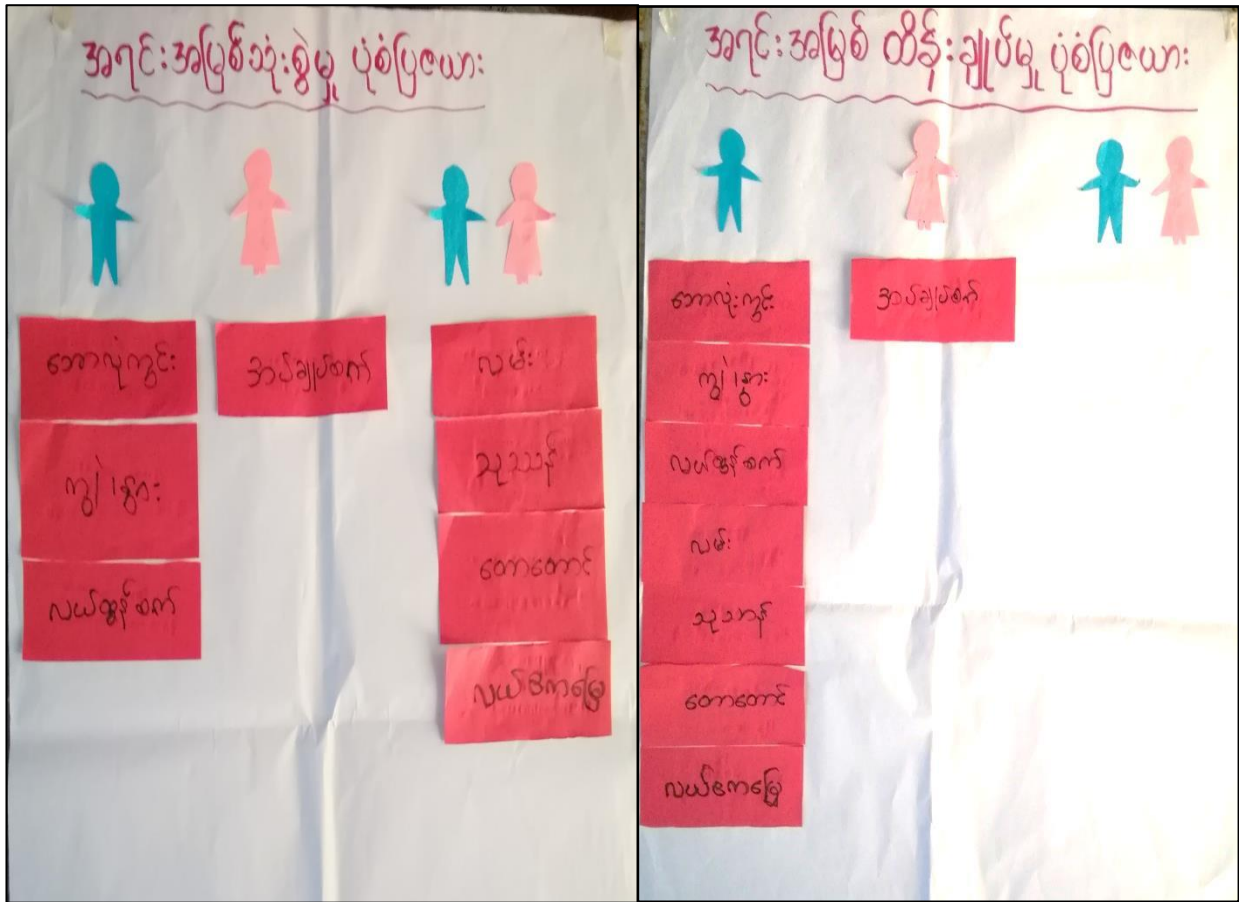 အရင်းအမြစ်သုံးစွဲမှု ပုံစံပြဇယား
ဘောလုံကွင်း
ကျွဲ၊နွား
လယ်ထွန်စက်
အပ်ချုပ်စက်
လမ်း
သုဿန်
တောတောင်
လယ်ဧကမြေ
အရင်းအမြစ် ထိန်းချုပ်မှု ပုံစံပြဇယား
ဘောလုံးကွင်း
ကျွဲ၊နွား
လယ်ထွန်စက်
လမ်း
သုသာန်
တောတောင်
လယ်ဧကမြေ
အပ်ချုပ်စက်